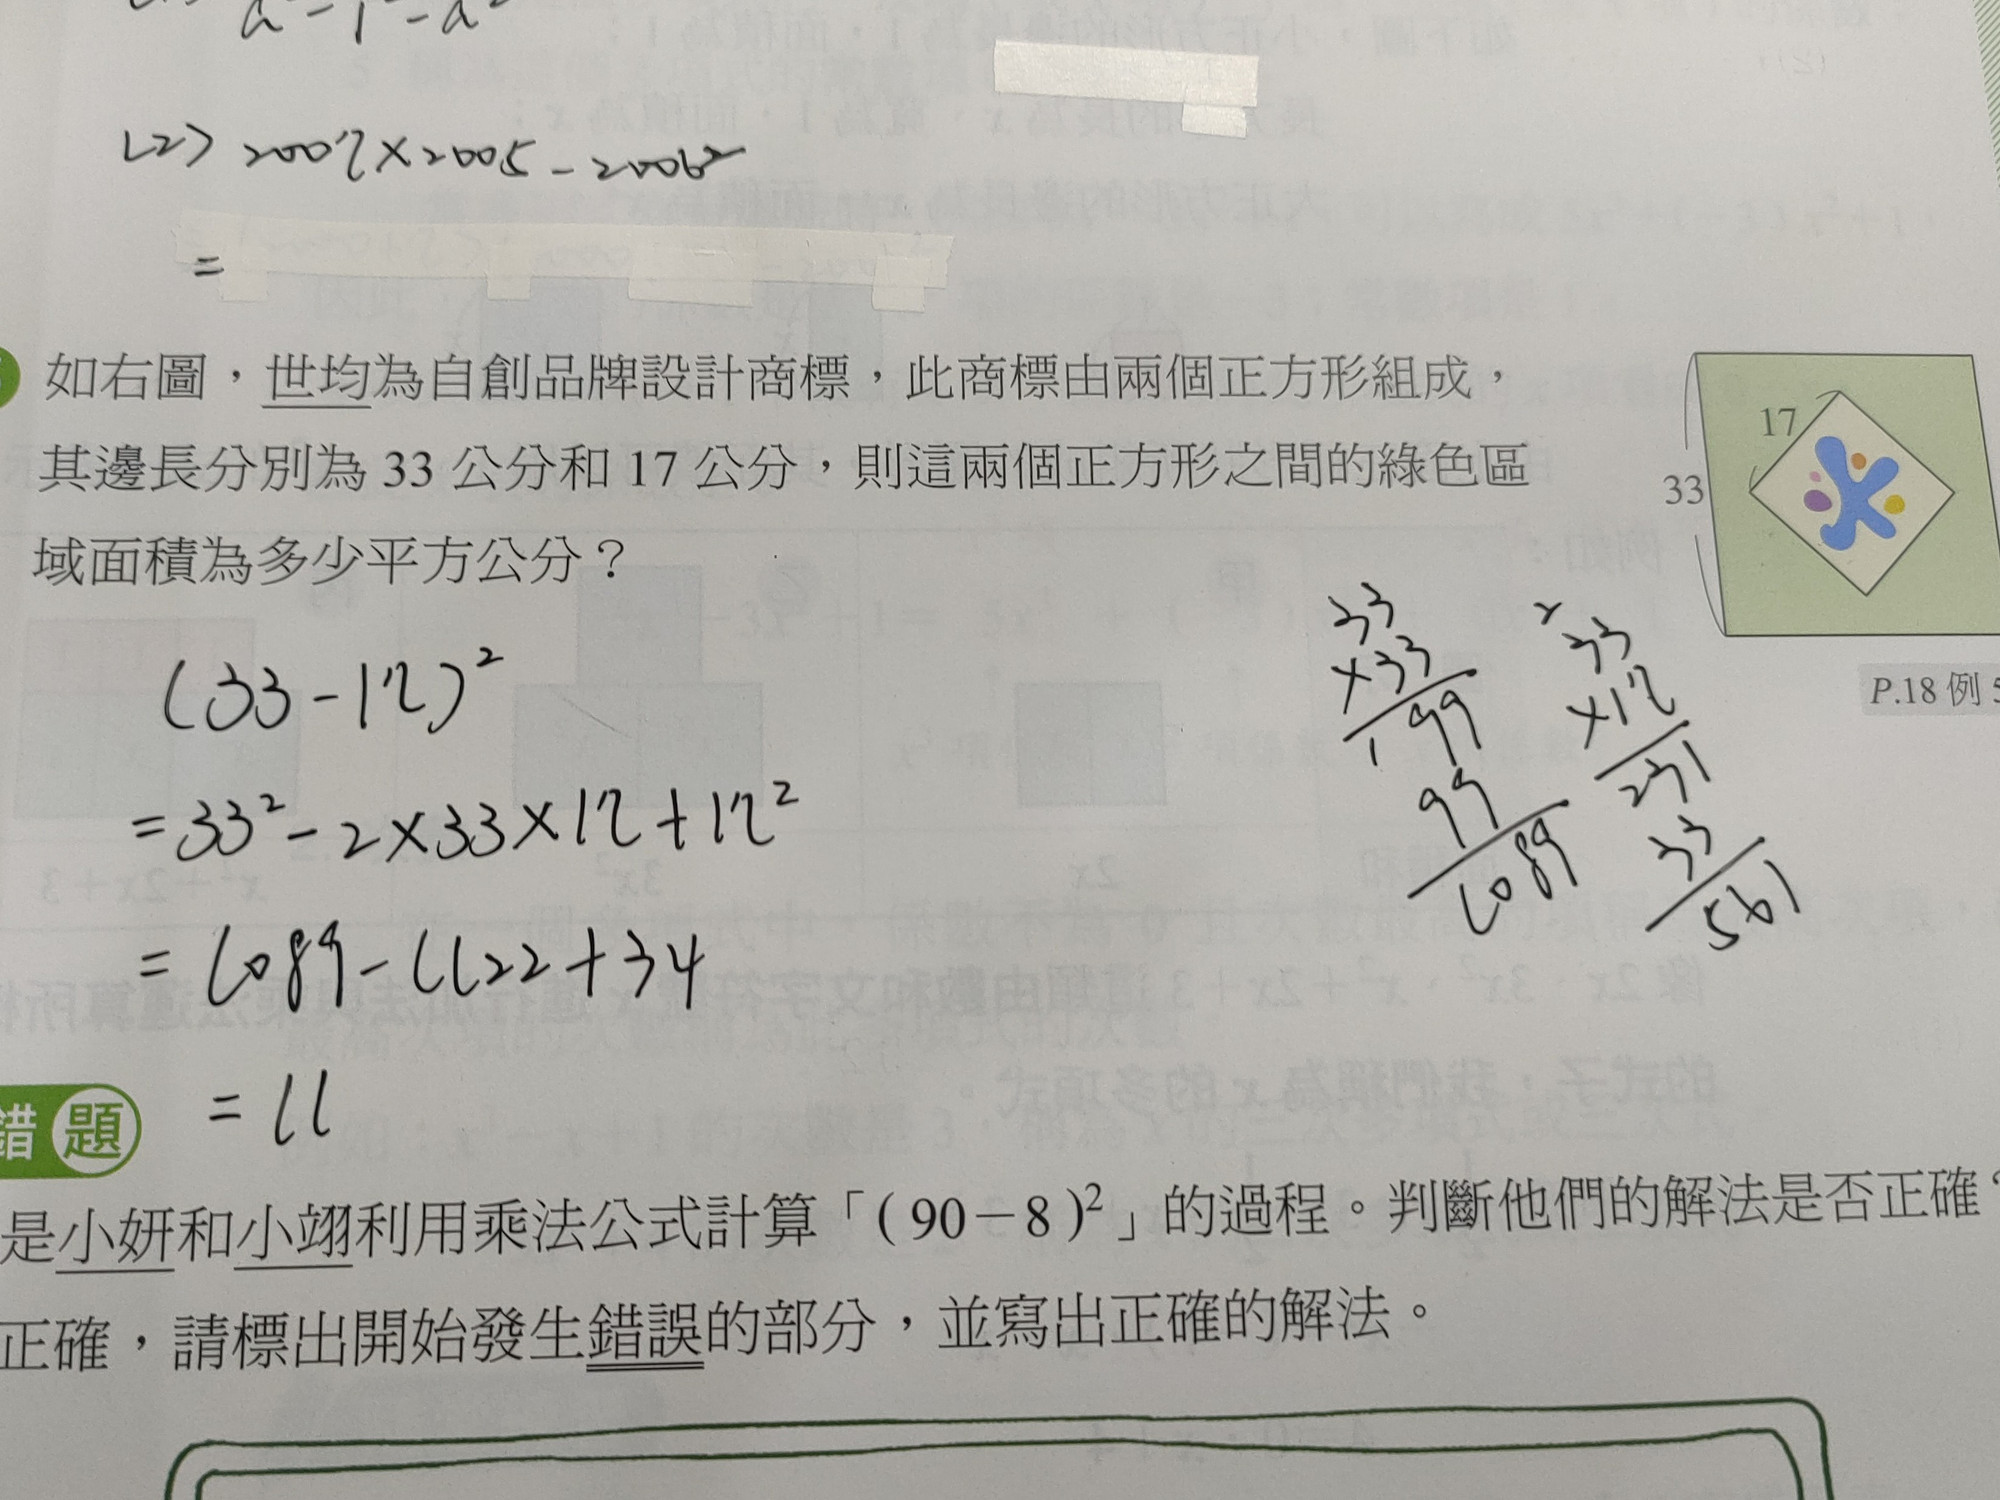 (2) 2007×2005－2006²
=
如右圖，世均為自創品牌設計商標，此商標由兩個正方形組成，
其邊長分別為 33 公分和 17 公分，則這兩個正方形之間的綠色區
域面積為多少平方公分？
17
33
P.18 例 5
(33-17)²
=33²-2×33×17+17²
=1089-1122+34
=11
33
×33
199
99
1089
2
33
×17
231
33
561
錯題
是小妍和小翊利用乘法公式計算「(90－8)²」的過程。判斷他們的解法是否正確？
正確，請標出開始發生錯誤的部分，並寫出正確的解法。